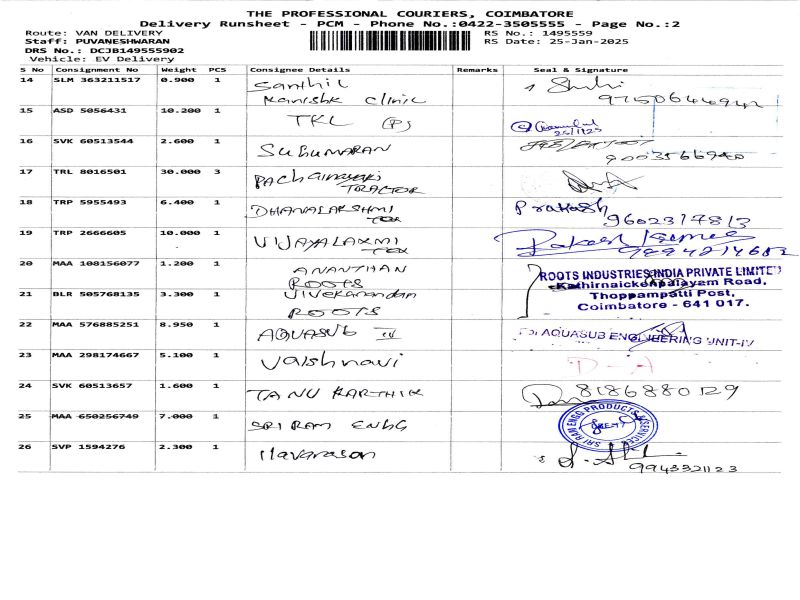 THE PROFESSIONAL COURIERS, COIMBATORE
Delivery Runsheet - PCM - Phone No.:0422-3505555 - Page No.:2
Route: VAN DELIVERY RS No.: 1495559
Staff: PUVANESHWARAN RS Date: 25-Jan-2025
DRS No.: DCJB149555902
Vehicle: EV Delivery
S No Consignment No Weight PCS Consignee Details Remarks Seal & Signature
14 SLM 363211517 0.900 1 Santhil
Kanishk clinic 9750644942
15 ASD 5056431 10.200 1 TKL (P) 25/1/25
16 SVK 60513544 2.600 1 SUBUMARAN 9003566940
17 TRL 8016501 30.000 3 PACHAINAYAKI
TRACTOR
18 TRP 5955493 6.400 1 DHANALAKSHMI
TEX Prakash 9602317813
19 TRP 2666605 10.000 1 VIJAYALAXMI
TEX Rakesh Kumar
20 MAA 108156077 1.200 1 ANANTHAN
ROOTS ROOTS INDUSTRIES INDIA PRIVATE LIMITED
Kathirnaickenpalayam Road,
21 BLR 505768135 3.300 1 Vivekanandan
ROOTS Thoppampatti Post,
Coimbatore - 641 017.
22 MAA 576885251 8.950 1 AQUASUB IV For AQUASUB ENGINEERING UNIT-IV
23 MAA 298174667 5.100 1 Vaishnavi D-A
24 SVK 60513657 1.600 1 TANU KARTHIK 8186880129
25 MAA 650256749 7.000 1 SRI RAM ENGG SRI RAM ENGG PRODUCTS & SERVICES
26 SVP 1594276 2.300 1 Ilavarason 9943321123